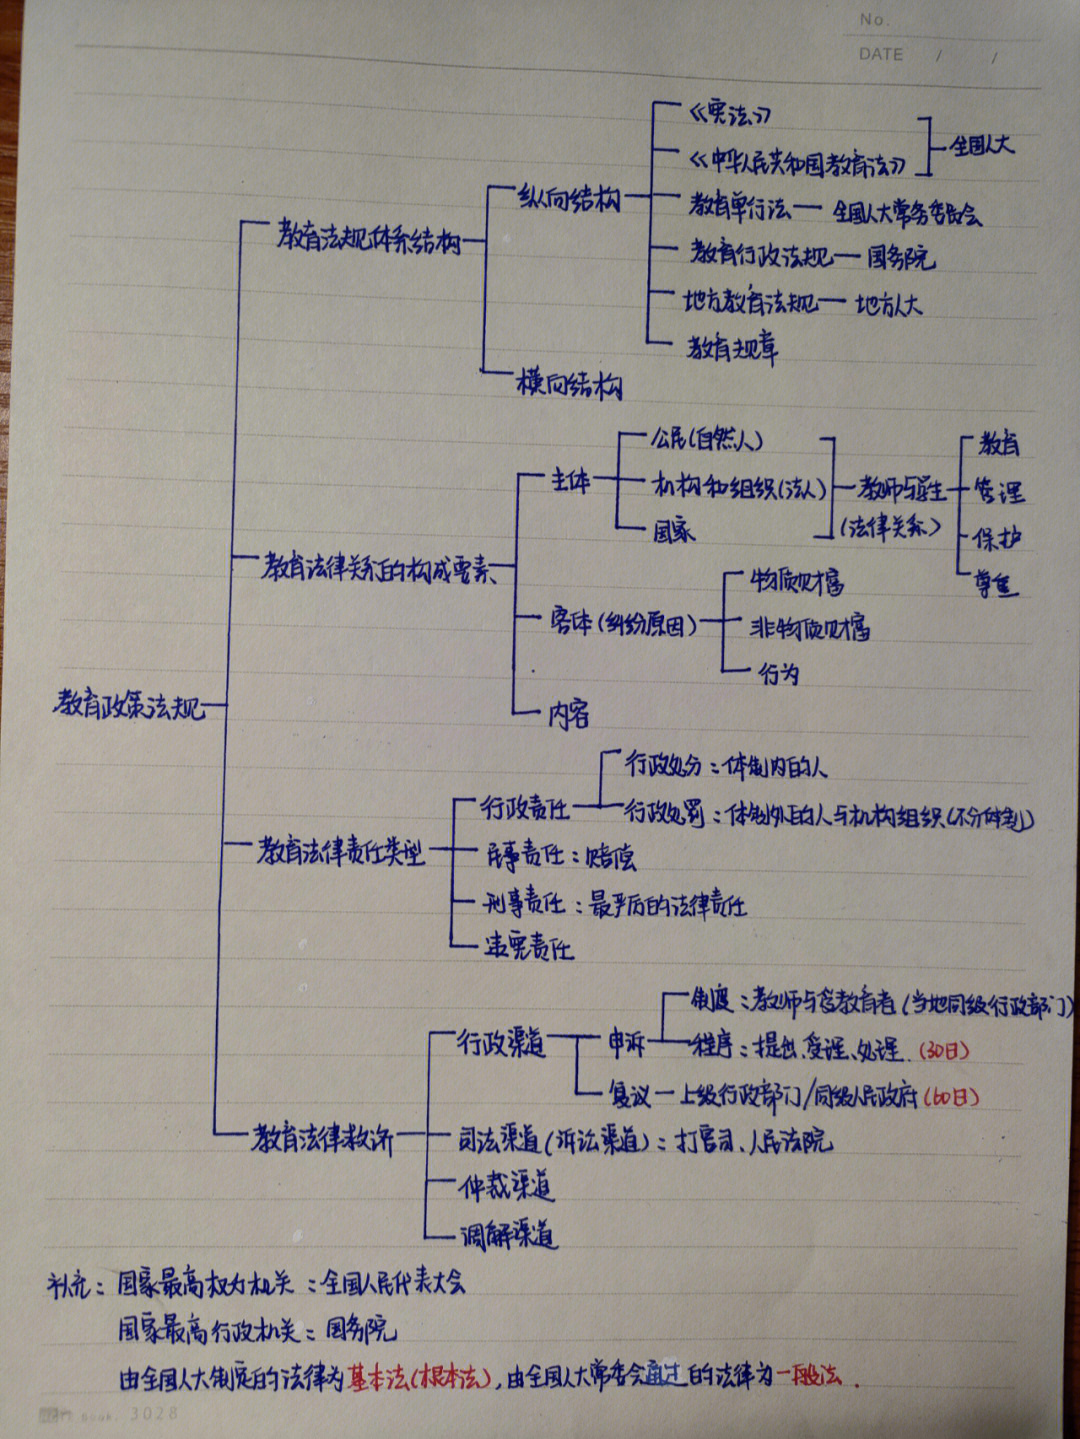 No.
DATE / /
《宪法》
《中华人民共和国教育法》
全国人大
纵向结构
教育单行法 — 全国人大常务委员会
教育法规体系结构
教育行政法规 — 国务院
地方教育法规 — 地方人大
教育规章
横向结构
公民(自然人)
教育
主体
机构和组织(法人)
教师与学生
管理
国家
(法律关系)
保护
教育法律关系的构成要素
物质财富
尊重
客体(纠纷原因)
非物质财富
行为
教育政策法规
内容
行政处分:体制内的人
行政责任
行政处罚:体制外的人与机构组织(不分体制)
教育法律责任类型
民事责任:赔偿
刑事责任:最严厉的法律责任
违宪责任
制度:教师与受教育者(当地同级行政部门)
行政渠道
申诉
程序:提出、受理、处理.(30日)
复议 — 上级行政部门/同级人民政府(60日)
教育法律救济
司法渠道(诉讼渠道):打官司、人民法院
仲裁渠道
调解渠道
补充:国家最高权力机关:全国人民代表大会
国家最高行政机关:国务院
由全国人大制定的法律为基本法(根本法),由全国人大常委会通过的法律为一般法.
Book. 3028